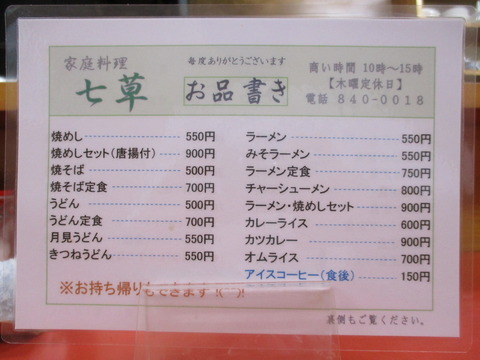 家庭料理
七草
毎度ありがとうございます
お品書き
商い時間 10時～15時
【木曜定休日】
電話 840-0018
焼めし 550円
焼めしセット(唐揚付) 900円
焼そば 500円
焼そば定食 700円
うどん 500円
うどん定食 700円
月見うどん 550円
きつねうどん 550円
ラーメン 550円
みそラーメン 550円
ラーメン定食 750円
チャーシューメン 800円
ラーメン・焼めしセット 900円
カレーライス 600円
カツカレー 900円
オムライス 700円
アイスコーヒー(食後) 150円
※お持ち帰りもできます !(^^)!
裏側もご覧ください。